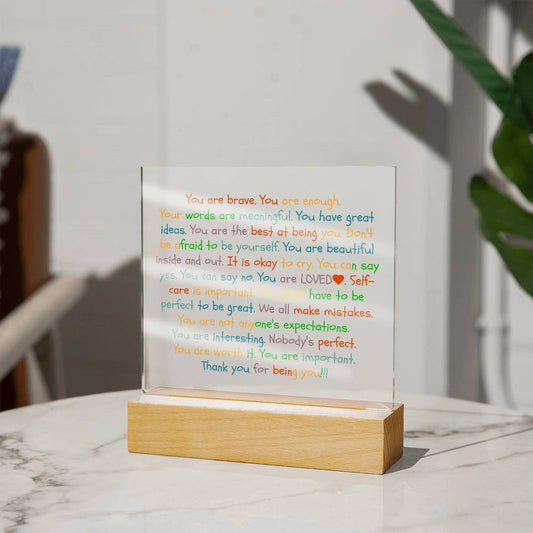 You are brave. You are enough.
Your words are meaningful. You have great
ideas. You are the best at being you. Don't
be afraid to be yourself. You are beautiful
inside and out. It is okay to cry. You can say
yes. You can say no. You are LOVED❤. Self-
care is important. have to be
perfect to be great. We all make mistakes.
You are not anyone's expectations.
You are interesting. Nobody's perfect.
You are worth it. You are important.
Thank you for being you!!!